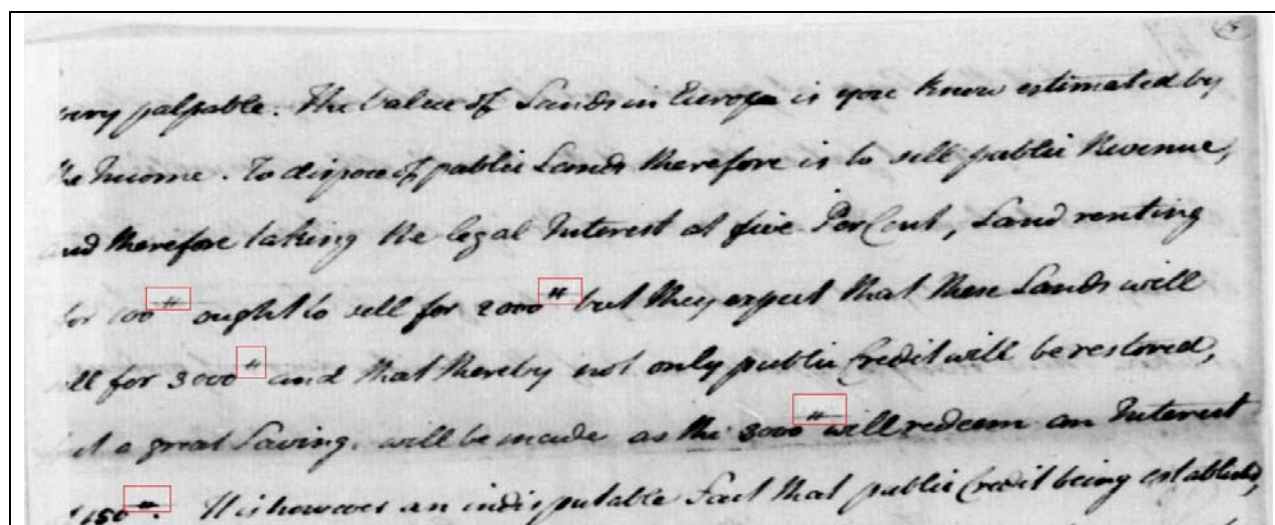 very palpable. The Value of Lands in Europe is you know estimated by
the Income. To dispose of public Lands therefore is to sell public Revenue,
and therefore taking the legal Interest at five Per Cent, Land renting
for 100 ₶ ought to sell for 2000 ₶ but they expect that these Lands will
sell for 3000 ₶ and that thereby not only public Credit will be restored,
but a great Saving, will be made as the 3000 ₶ will redeem an Interest
150 ₶. It is however an indisputable Fact that public Credit being established,